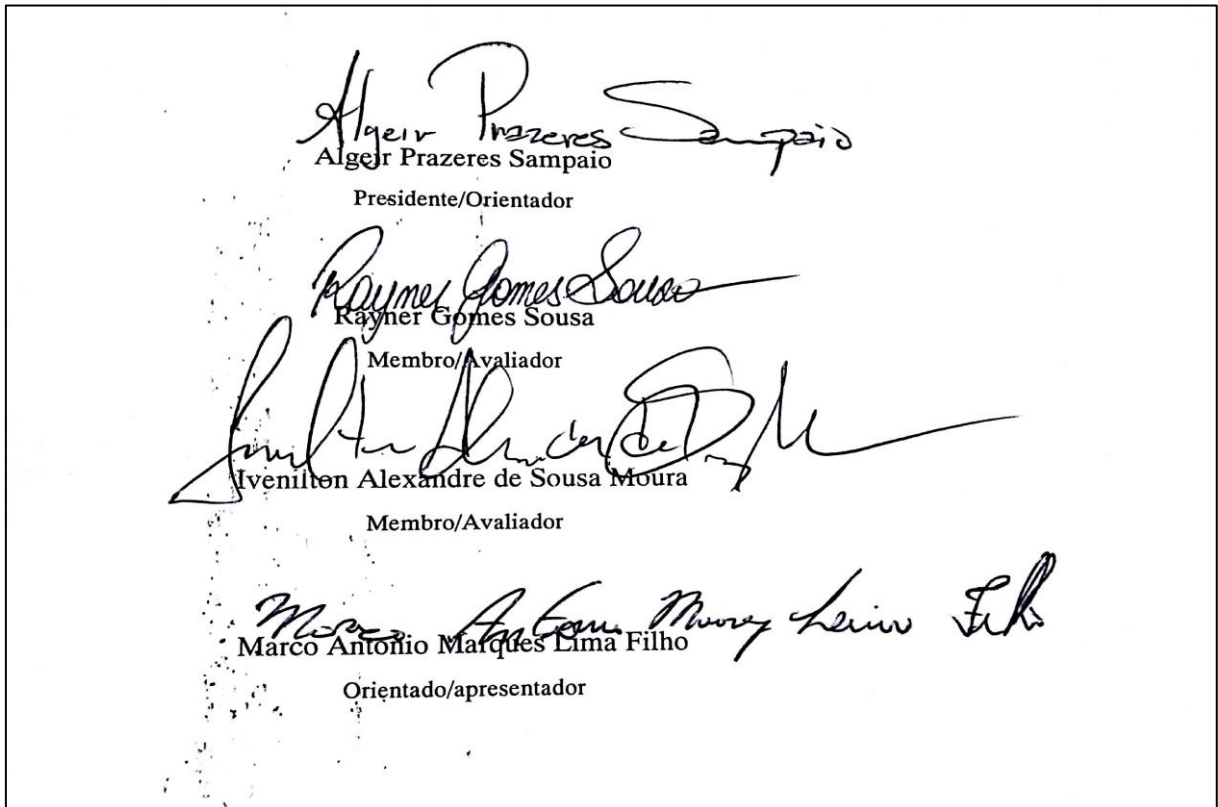 Algeir Prazeres Sampaio
Algeir Prazeres Sampaio
Presidente/Orientador
Rayner Gomes Sousa
Rayner Gomes Sousa
Membro/Avaliador
Ivenilton Alexandre de Sousa Moura
Membro/Avaliador
Marco Antonio
Filho
Marco Antônio Marques Lima Filho
Orientado/apresentador